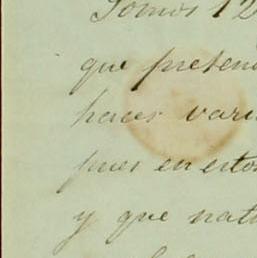 Somos 12
que preten
hacer vari
pues en esto
y que nat